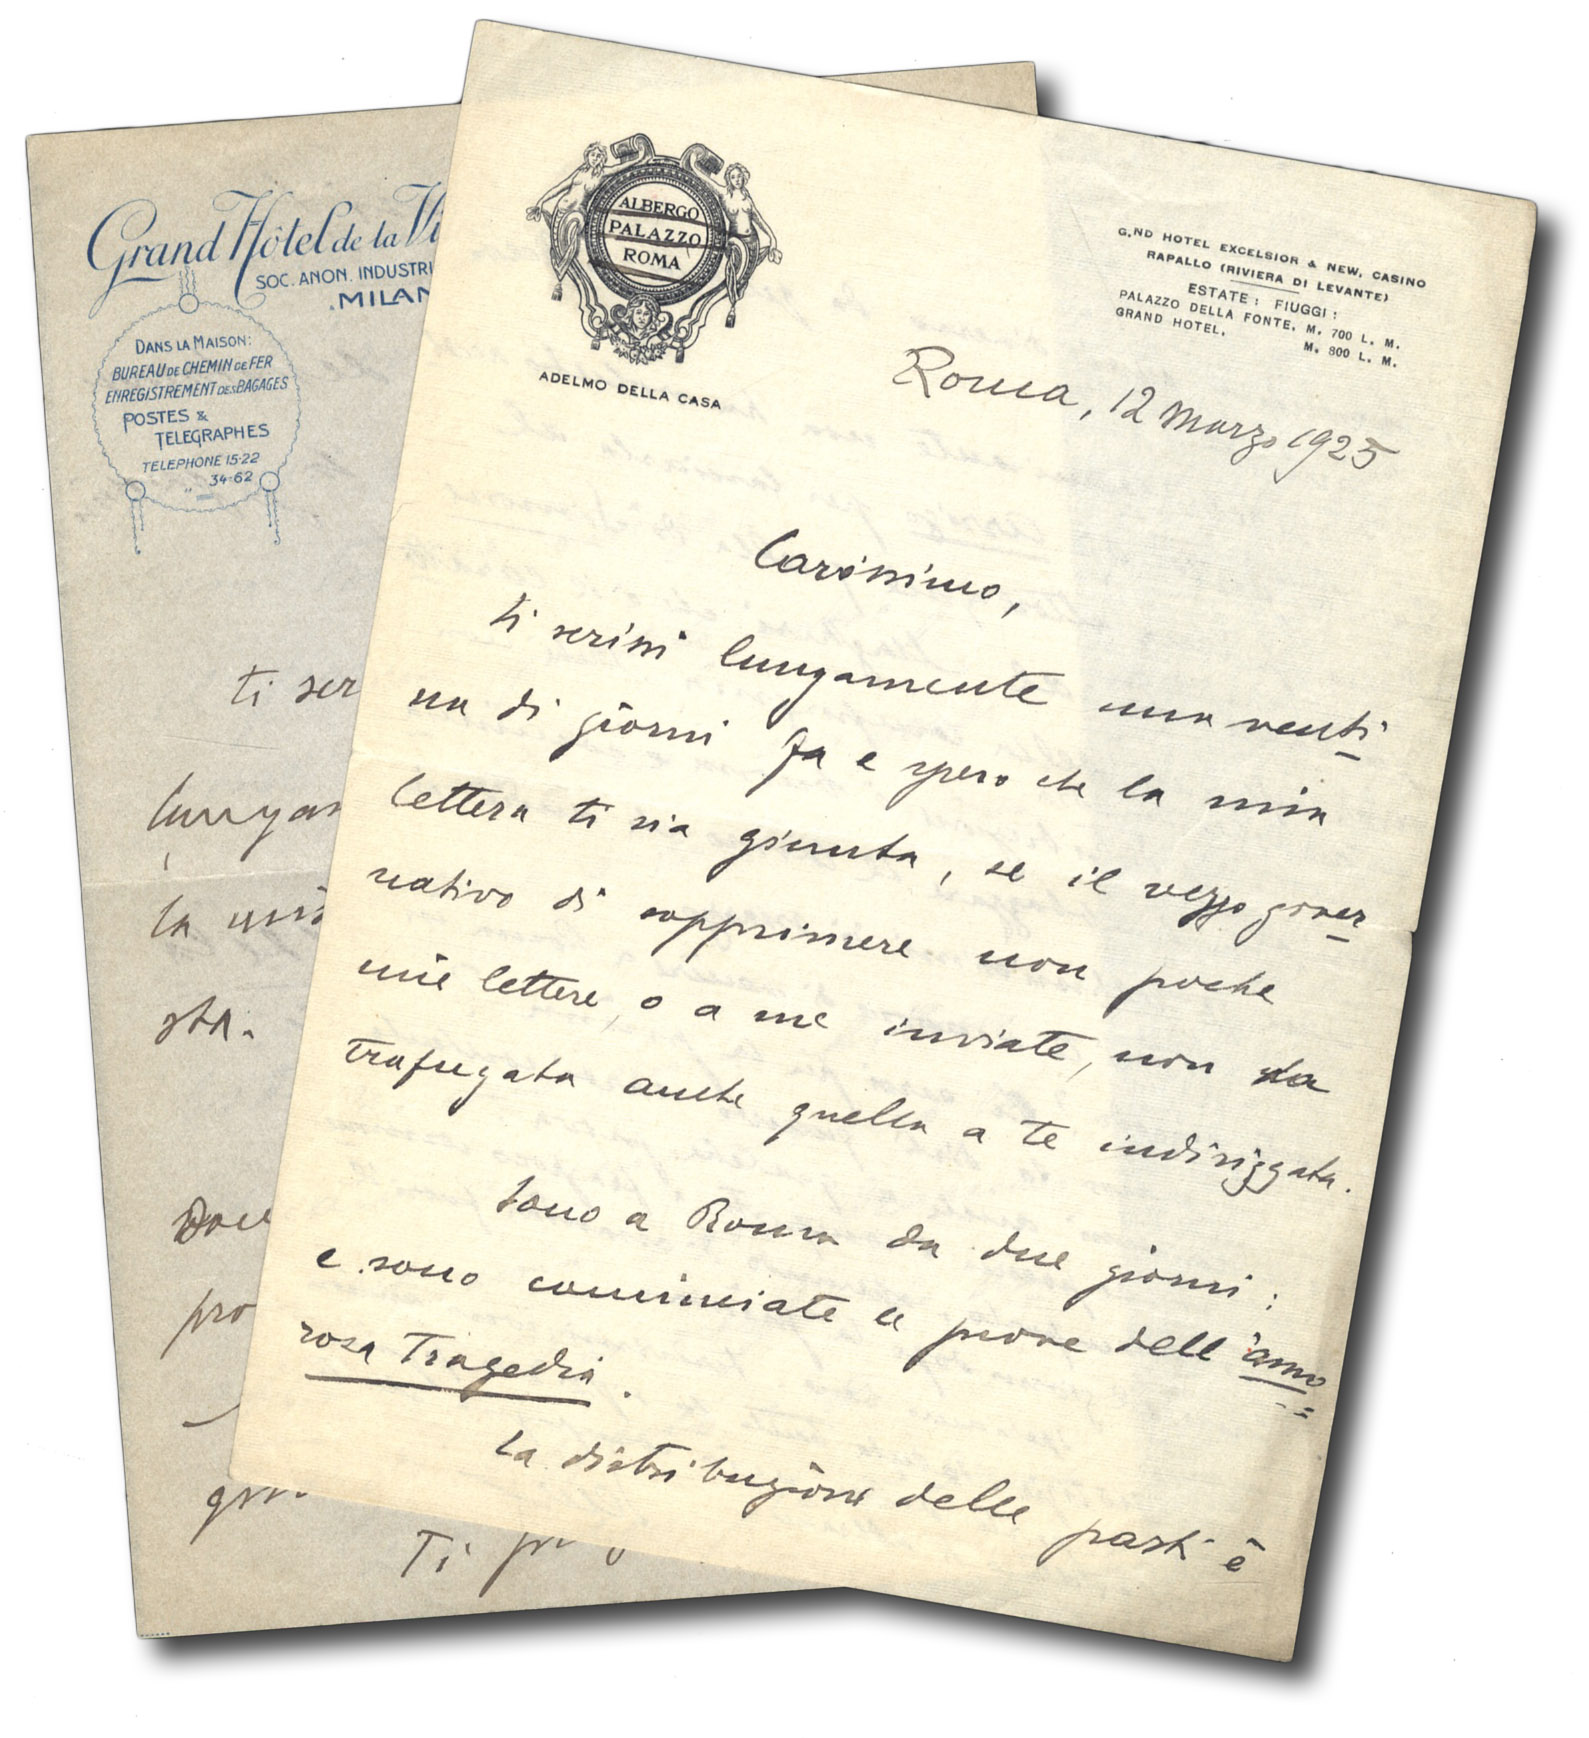 Grand Hôtel de la Vi
SOC. ANON. INDUSTRI
MILAN
DANS LA MAISON:
BUREAU DE CHEMIN DE FER
ENREGISTREMENT DES BAGAGES
POSTES &
TELEGRAPHES
TELEPHONE 15-22
" 34-62
ti scr
lungam
la mis
sta.
pro
Ti
ALBERGO
PALAZZO
ROMA
ADELMO DELLA CASA
G.ND HOTEL EXCELSIOR & NEW, CASINO
RAPALLO (RIVIERA DI LEVANTE)
ESTATE: FIUGGI:
PALAZZO DELLA FONTE. M. 700 L. M.
GRAND HOTEL. M. 800 L. M.
Roma, 12 Marzo 1925
Carissimo,
ti scrissi lungamente una venti
na di giorni fa e spero che la mia
lettera ti sia giunta, se il vezzo gover
nativo di sopprimere non poche
mie lettere, o a me inviate, non ha
trafugata anche quella a te indirizzata.
Sono a Roma da due giorni:
e sono cominciate le prove dell'amo=
rosa Tragedia.
La distribuzione delle parti è